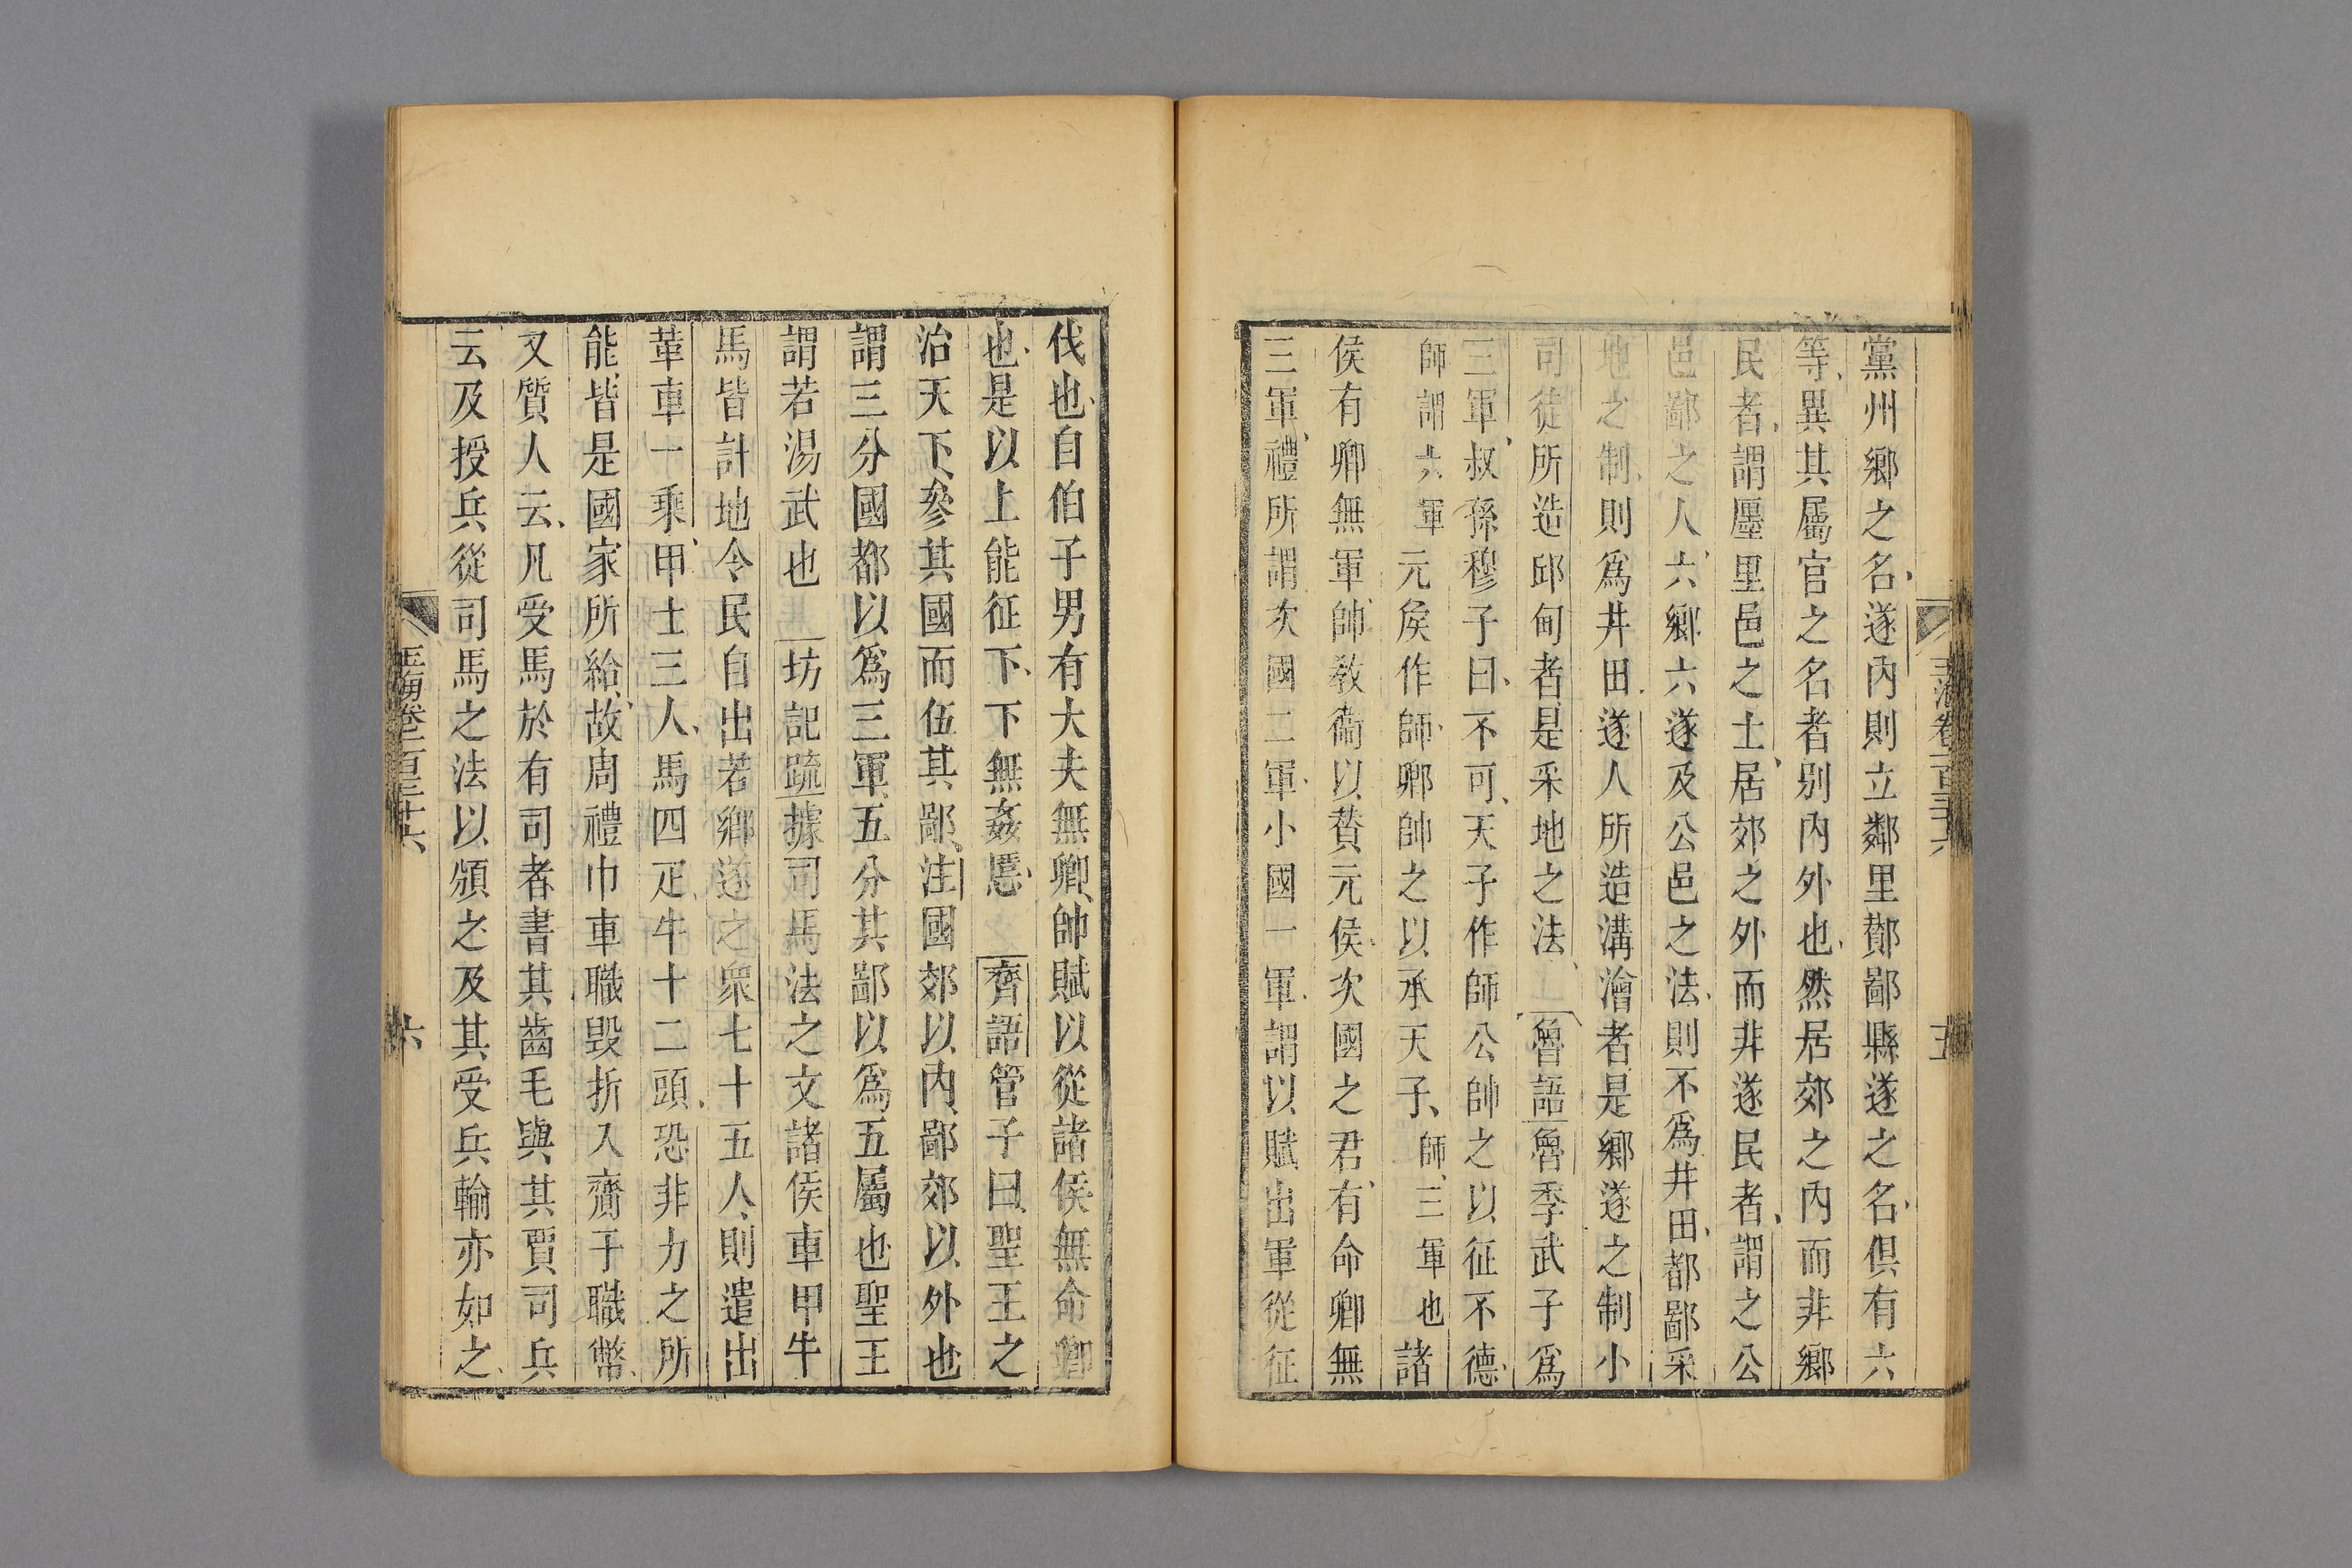 黨州鄉之名遂內則立鄰里酇鄙縣遂之名俱有六
等異其屬官之名者别內外也然居郊之內而非鄉
民者謂廛里邑之士居郊之外而非遂民者謂之公
邑鄙之人六鄉六遂及公邑之法則不爲井田都鄙采
地之制則爲井田遂人所造溝澮者是鄉遂之制小
司徒所造邱甸者是采地之法魯語魯季武子爲
三軍叔孫穆子曰不可天子作師公帥之以征不德
師謂六軍元侯作師卿帥之以承天子師三軍也諸
侯有卿無軍帥教衞以贊元侯次國之君有命卿無
三軍禮所謂次國二軍小國一軍謂以賦出軍從征
玉海卷一百三十六
五
伐也自伯子男有大夫無卿帥賦以從諸侯無命卿
也是以上能征下下無姦慝齊語管子曰聖王之
治天下參其國而伍其鄙注國郊以內鄙郊以外也
謂三分國都以爲三軍五分其鄙以爲五屬也聖王
謂若湯武也坊記疏據司馬法之文諸侯車甲牛
馬皆計地令民自出若鄉遂之衆七十五人則遣出
革車一乘甲士三人馬四疋牛十二頭恐非力之所
能皆是國家所給故周禮巾車職毀折入齎于職幣
又質人云凡受馬於有司者書其齒毛與其賈司兵
云及授兵從司馬之法以頒之及其受兵輸亦如之
玉海卷一百三十六
六